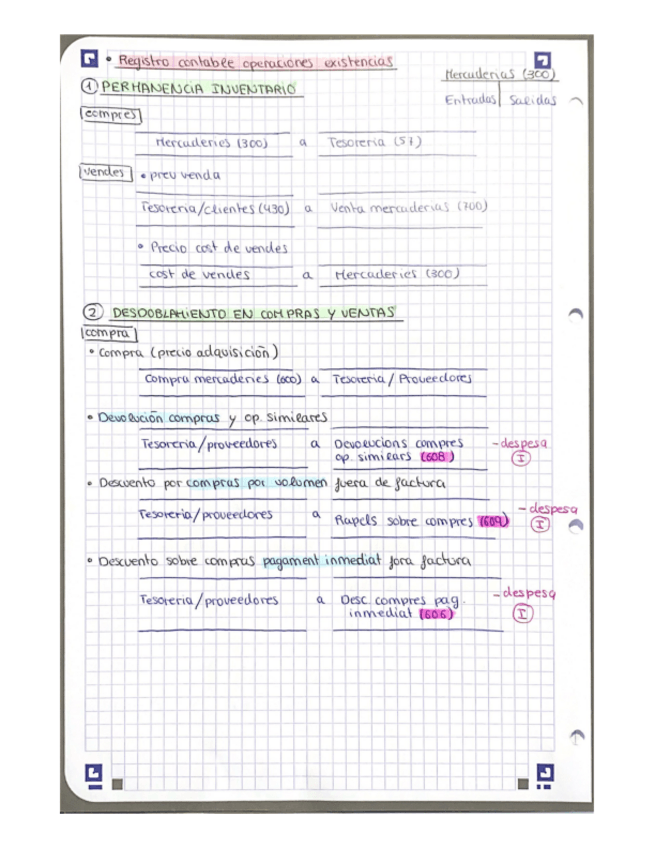 • Registro contable operaciones existencias
Mercaderias (300)
Entradas Salidas
① PERMANENCIA INVENTARIO
compres
Mercaderies (300) a Tesoreria (57)
vendes • preu venda
Tesoreria/clientes (430) a Venta mercaderias (700)
• Precio cost de vendes
cost de vendes a Mercaderies (300)
② DESDOBLAMIENTO EN COMPRAS Y VENTAS
compra
• Compra (precio adquisición)
Compra mercaderies (600) a Tesoreria / Proveedores
• Devolución compras y op. similares
Tesoreria/proveedores a Devolucions compres
op. similars (608)
- despesa
I
• Descuento por compras por volumen fuera de factura
Tesoreria/proveedores a Rapels sobre compres (609)
- despesa
I
• Descuento sobre compras pagament inmediat fora factura
Tesoreria/proveedores a Desc. compres pag.
inmediat (606)
- despesa
I